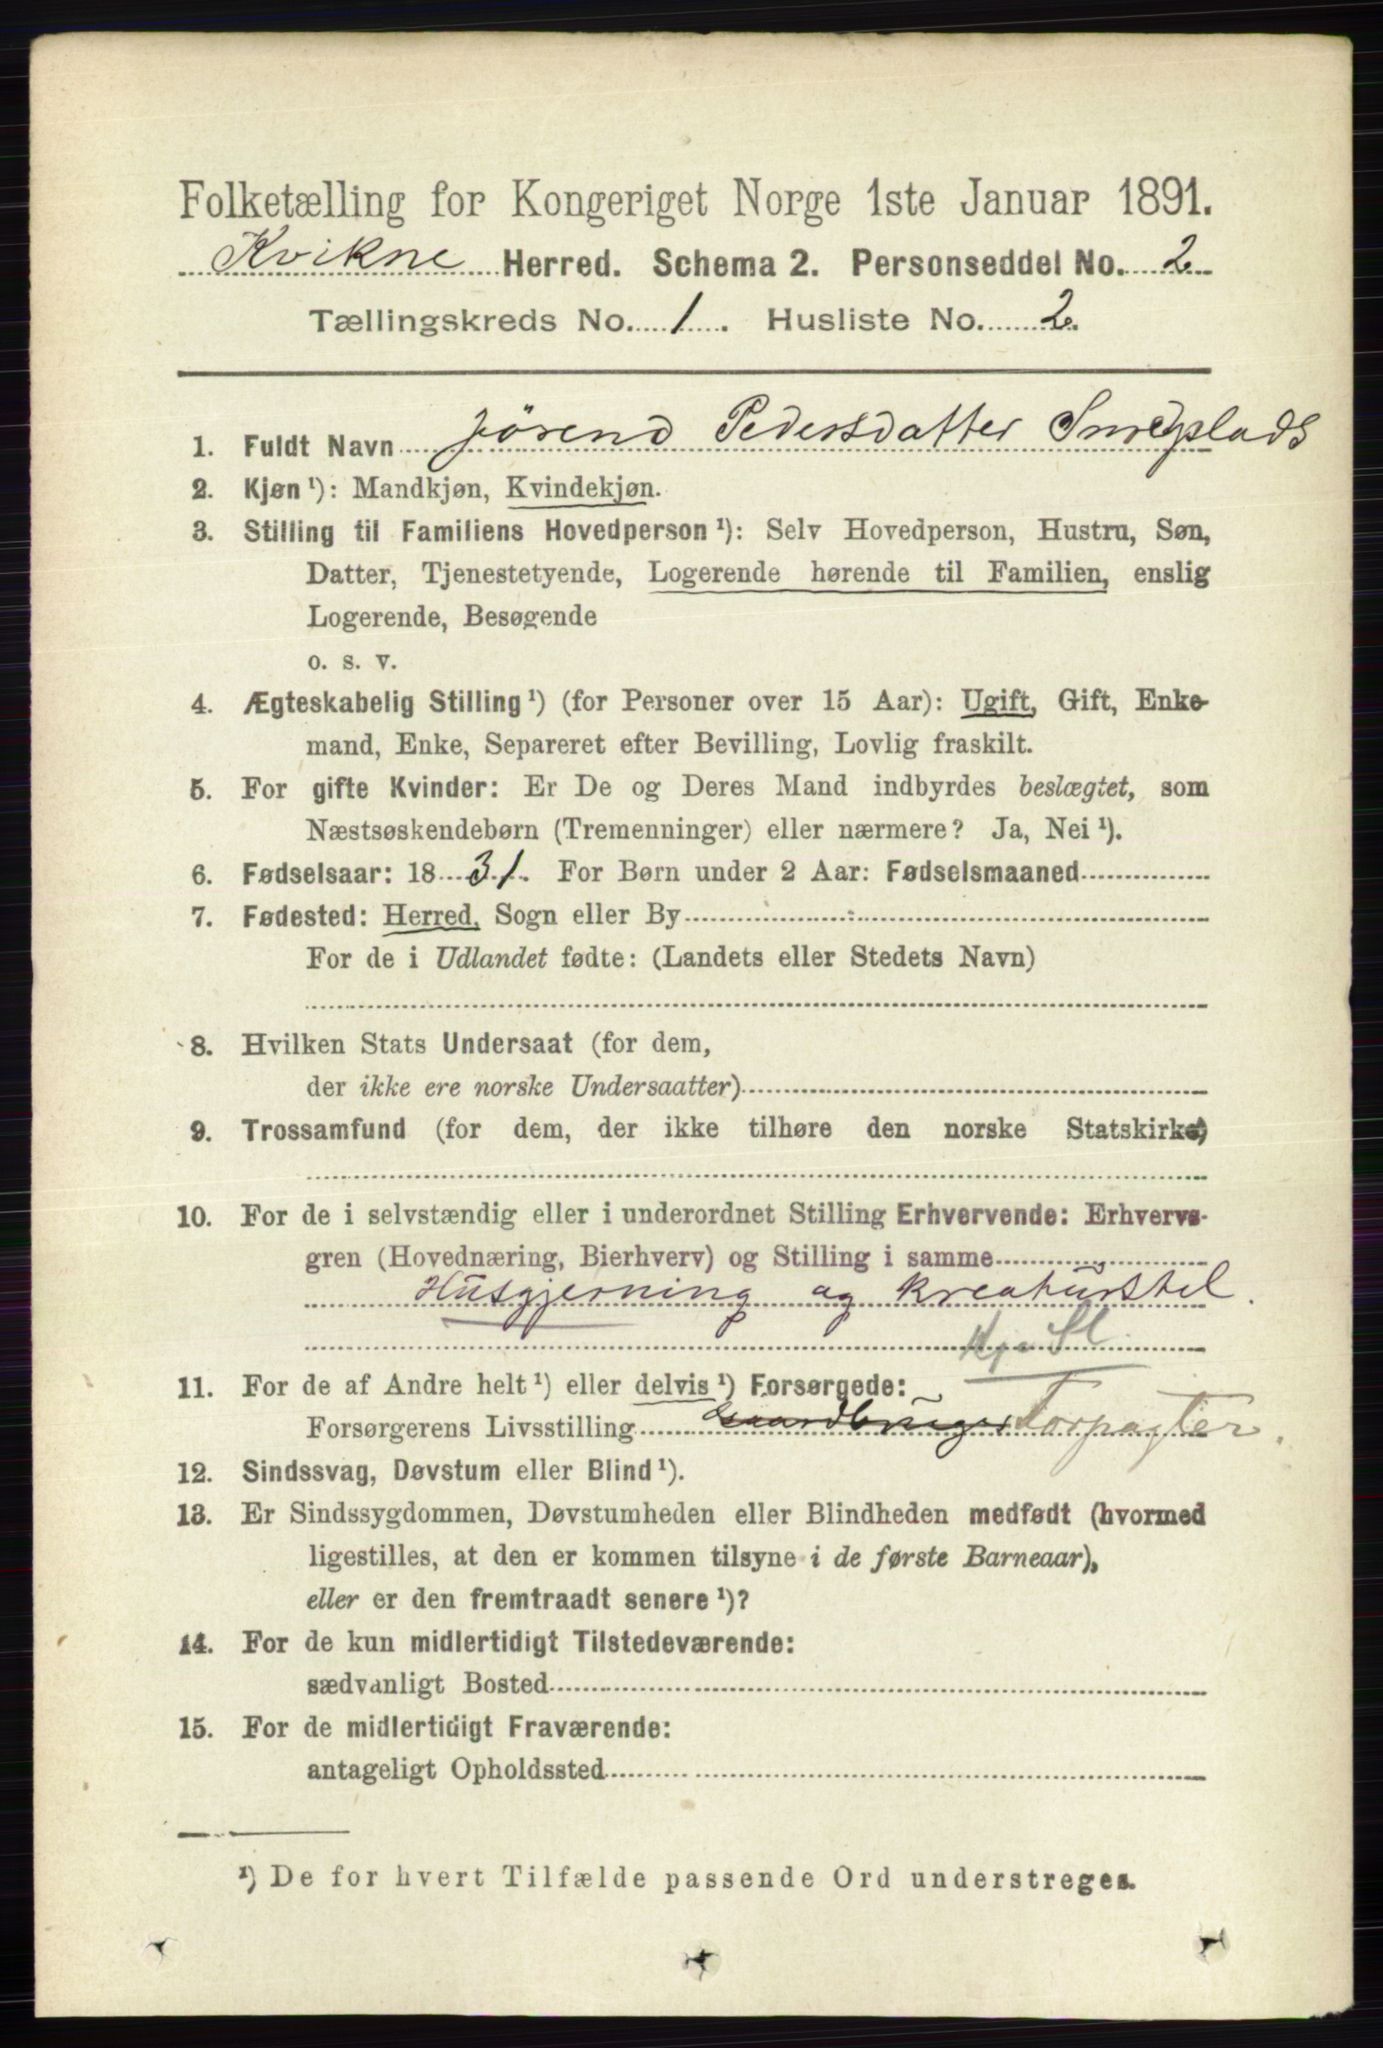 Folketælling for Kongeriget Norge 1ste Januar 1891.
Kvikne Herred. Schema 2. Personseddel No. 2
Tællingskreds No. 1. Husliste No. 2.
1. Fuldt Navn Jørend Pedersdatter Smedplads
2. Kjøn ¹): Mandkjøn, Kvindekjøn.
3. Stilling til Familiens Hovedperson ¹): Selv Hovedperson, Hustru, Søn,
Datter, Tjenestetyende, Logerende hørende til Familien, enslig
Logerende, Besøgende
o. s. v.
4. Ægteskabelig Stilling ¹) (for Personer over 15 Aar): Ugift, Gift, Enke-
mand, Enke, Separeret efter Bevilling, Lovlig fraskilt.
5. For gifte Kvinder: Er De og Deres Mand indbyrdes beslægtet, som
Næstsøskendebørn (Tremenninger) eller nærmere? Ja, Nei ¹).
6. Fødselsaar: 1831. For Børn under 2 Aar: Fødselsmaaned
7. Fødested: Herred, Sogn eller By
For de i Udlandet fødte: (Landets eller Stedets Navn)
8. Hvilken Stats Undersaat (for dem,
der ikke ere norske Undersaatter)
9. Trossamfund (for dem, der ikke tilhøre den norske Statskirke)
10. For de i selvstændig eller i underordnet Stilling Erhvervende: Erhvervs-
gren (Hovednæring, Bierhverv) og Stilling i samme
Husgjerning og kreaturstel.
11. For de af Andre helt ¹) eller delvis ¹) Forsørgede:
Forsørgerens Livsstilling Gaardbruger Forpagter.
12. Sindssvag, Døvstum eller Blind ¹).
13. Er Sindssygdommen, Døvstumheden eller Blindheden medfødt (hvormed
ligestilles, at den er kommen tilsyne i de første Barneaar),
eller er den fremtraadt senere ¹)?
14. For de kun midlertidigt Tilstedeværende:
sædvanligt Bosted
15. For de midlertidigt Fraværende:
antageligt Opholdssted
¹) De for hvert Tilfælde passende Ord understreges.